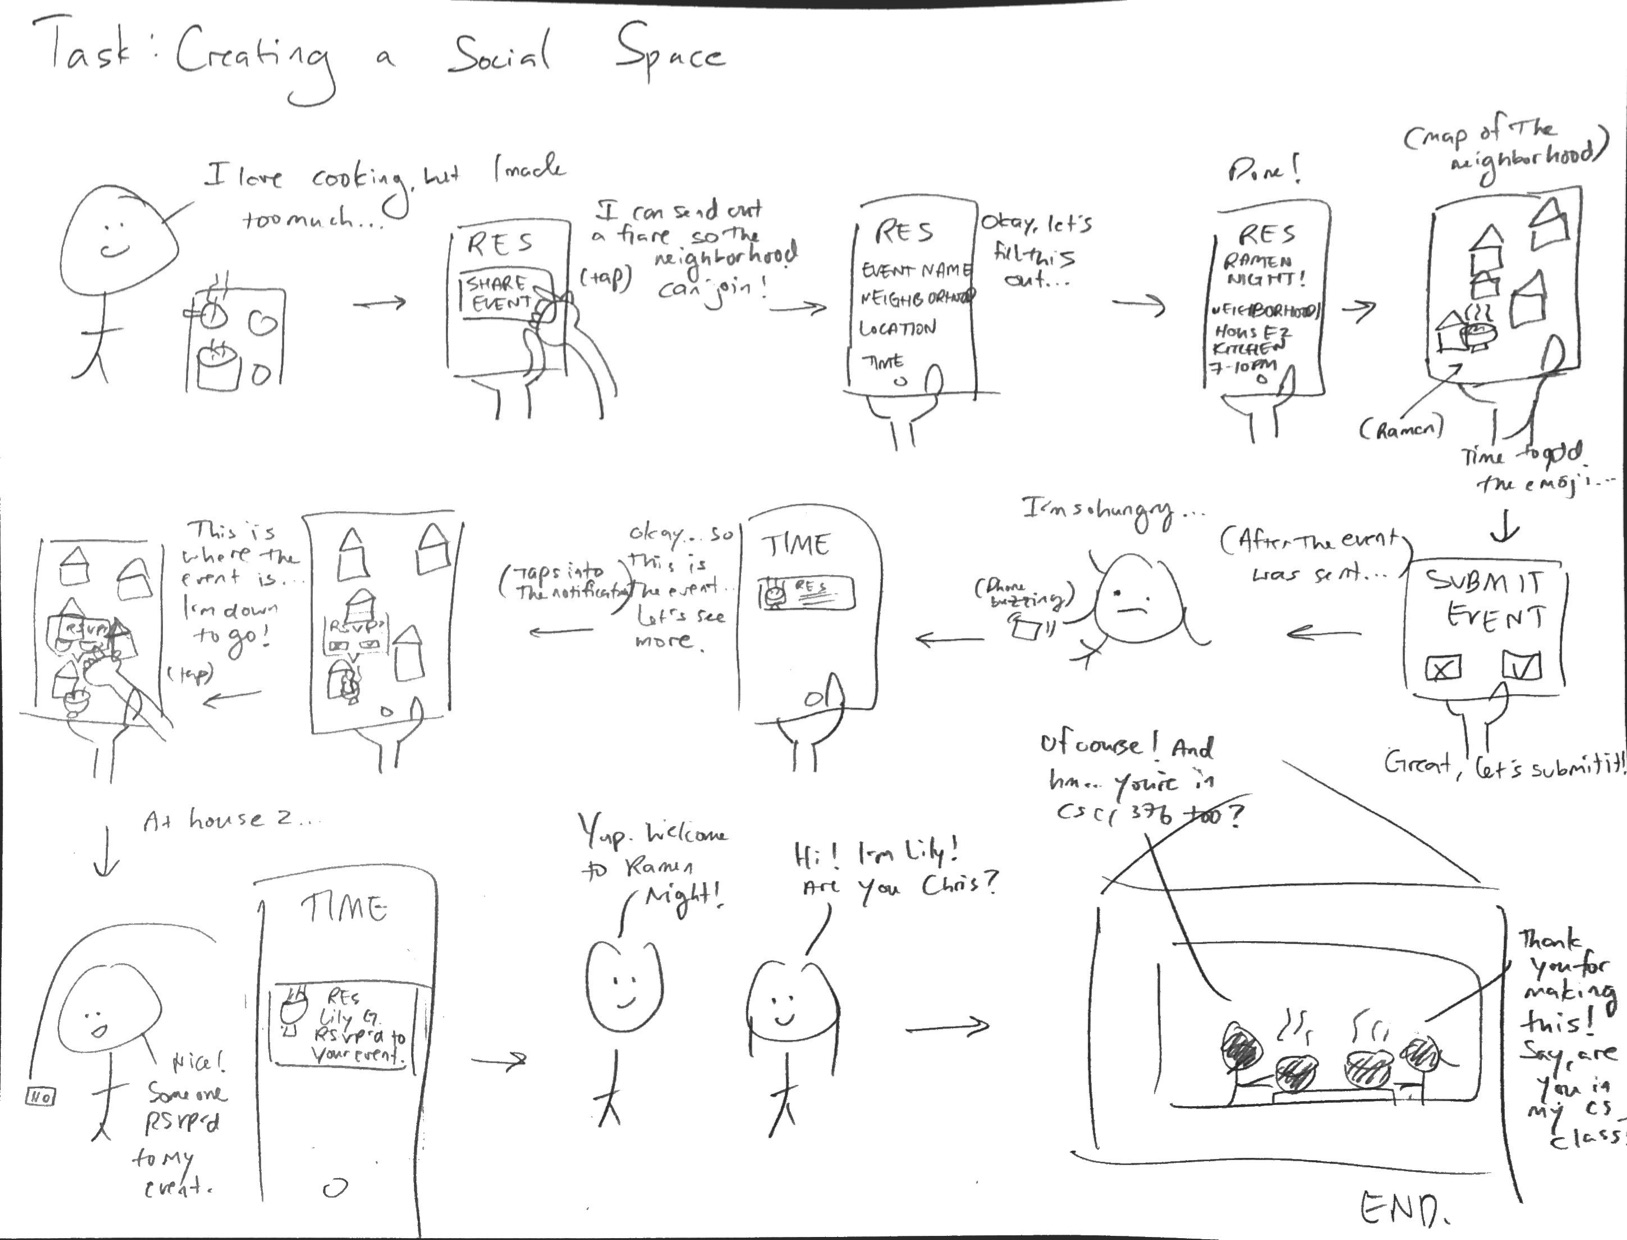 Task: Creating a Social Space
I love cooking, but I made
too much...
RES
SHARE
EVENT
(tap)
I can send out
a flare so the
neighborhood
can join!
RES
EVENT NAME
NEIGHBORHOOD
LOCATION
TIME
Okay, let's
fill this
out...
Done!
RES
RAMEN
NIGHT!
NEIGHBORHOOD
HOUSE 2
KITCHEN
7-10PM
(map of the
neighborhood)
(Ramen)
Time to add
the emoji...
SUBMIT
EVENT
X
Great, let's submit it!
(After the event
was sent...)
I'm so hungry...
(Phone
buzzing)
TIME
RES
okay... so
this is
the event...
let's see
more.
(Taps into
the notification)
RSVP?
This is
where the
event is...
I'm down
to go!
(tap)
RSVP?
At house 2...
Nice!
Someone
RSVP'd
to my
event.
TIME
RES
Lily G.
RSVP'd to
your event.
Yup. Welcome
to Ramen
Night!
Hi! I'm Lily!
Are you Chris?
Of course! And
hm... you're in
CSCI 376 too?
Thank
you for
making
this!
Say, are
you in
my CS
class
END.